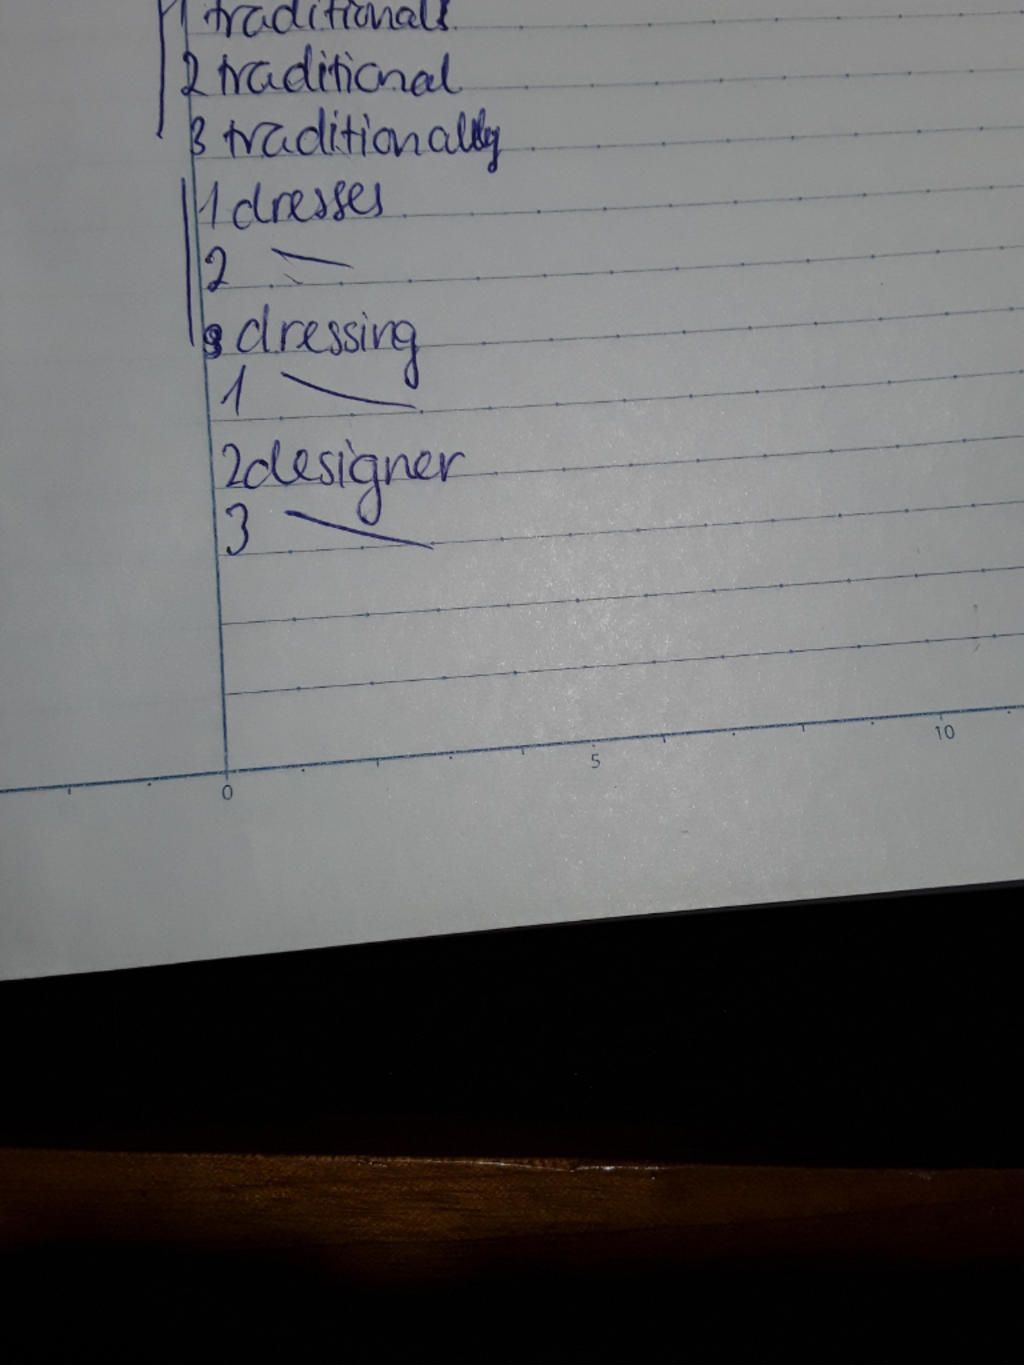 1 traditionals
2 traditional
3 traditionally
1 dresses
2
3 dressing
1
2 designer
3
0 5 10